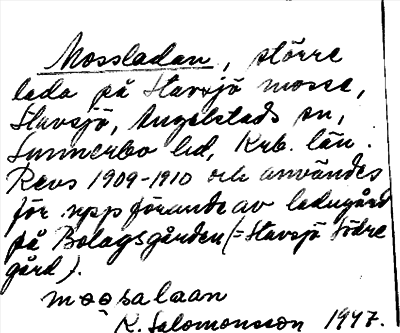 Mossladan, större
lada på Stavsjö mosse,
Stavsjö, Angelstads sn,
Sunnerbo hd, Krb. län.
Revs 1909-1910 och användes
för uppförande av ladugård
på Bolagsgården (= Stavsjö Södre
gård).
mosalaan
K. Salomonsson 1947.